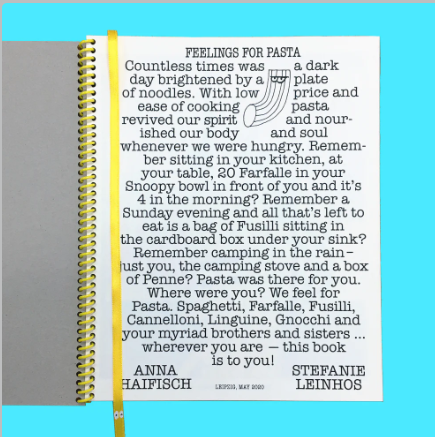 FEELINGS FOR PASTA
Countless times was a dark
day brightened by a plate
of noodles. With low price and
ease of cooking pasta
revived our spirit and nour-
ished our body and soul
whenever we were hungry. Remem-
ber sitting in your kitchen, at
your table, 20 Farfalle in your
Snoopy bowl in front of you and it's
4 in the morning? Remember a
Sunday evening and all that's left to
eat is a bag of Fusilli sitting in
the cardboard box under your sink?
Remember camping in the rain–
just you, the camping stove and a box
of Penne? Pasta was there for you.
Where were you? We feel for
Pasta. Spaghetti, Farfalle, Fusilli,
Cannelloni, Linguine, Gnocchi and
your myriad brothers and sisters ...
wherever you are — this book
is to you!
ANNA HAIFISCH
LEIPZIG, MAY 2020
STEFANIE LEINHOS